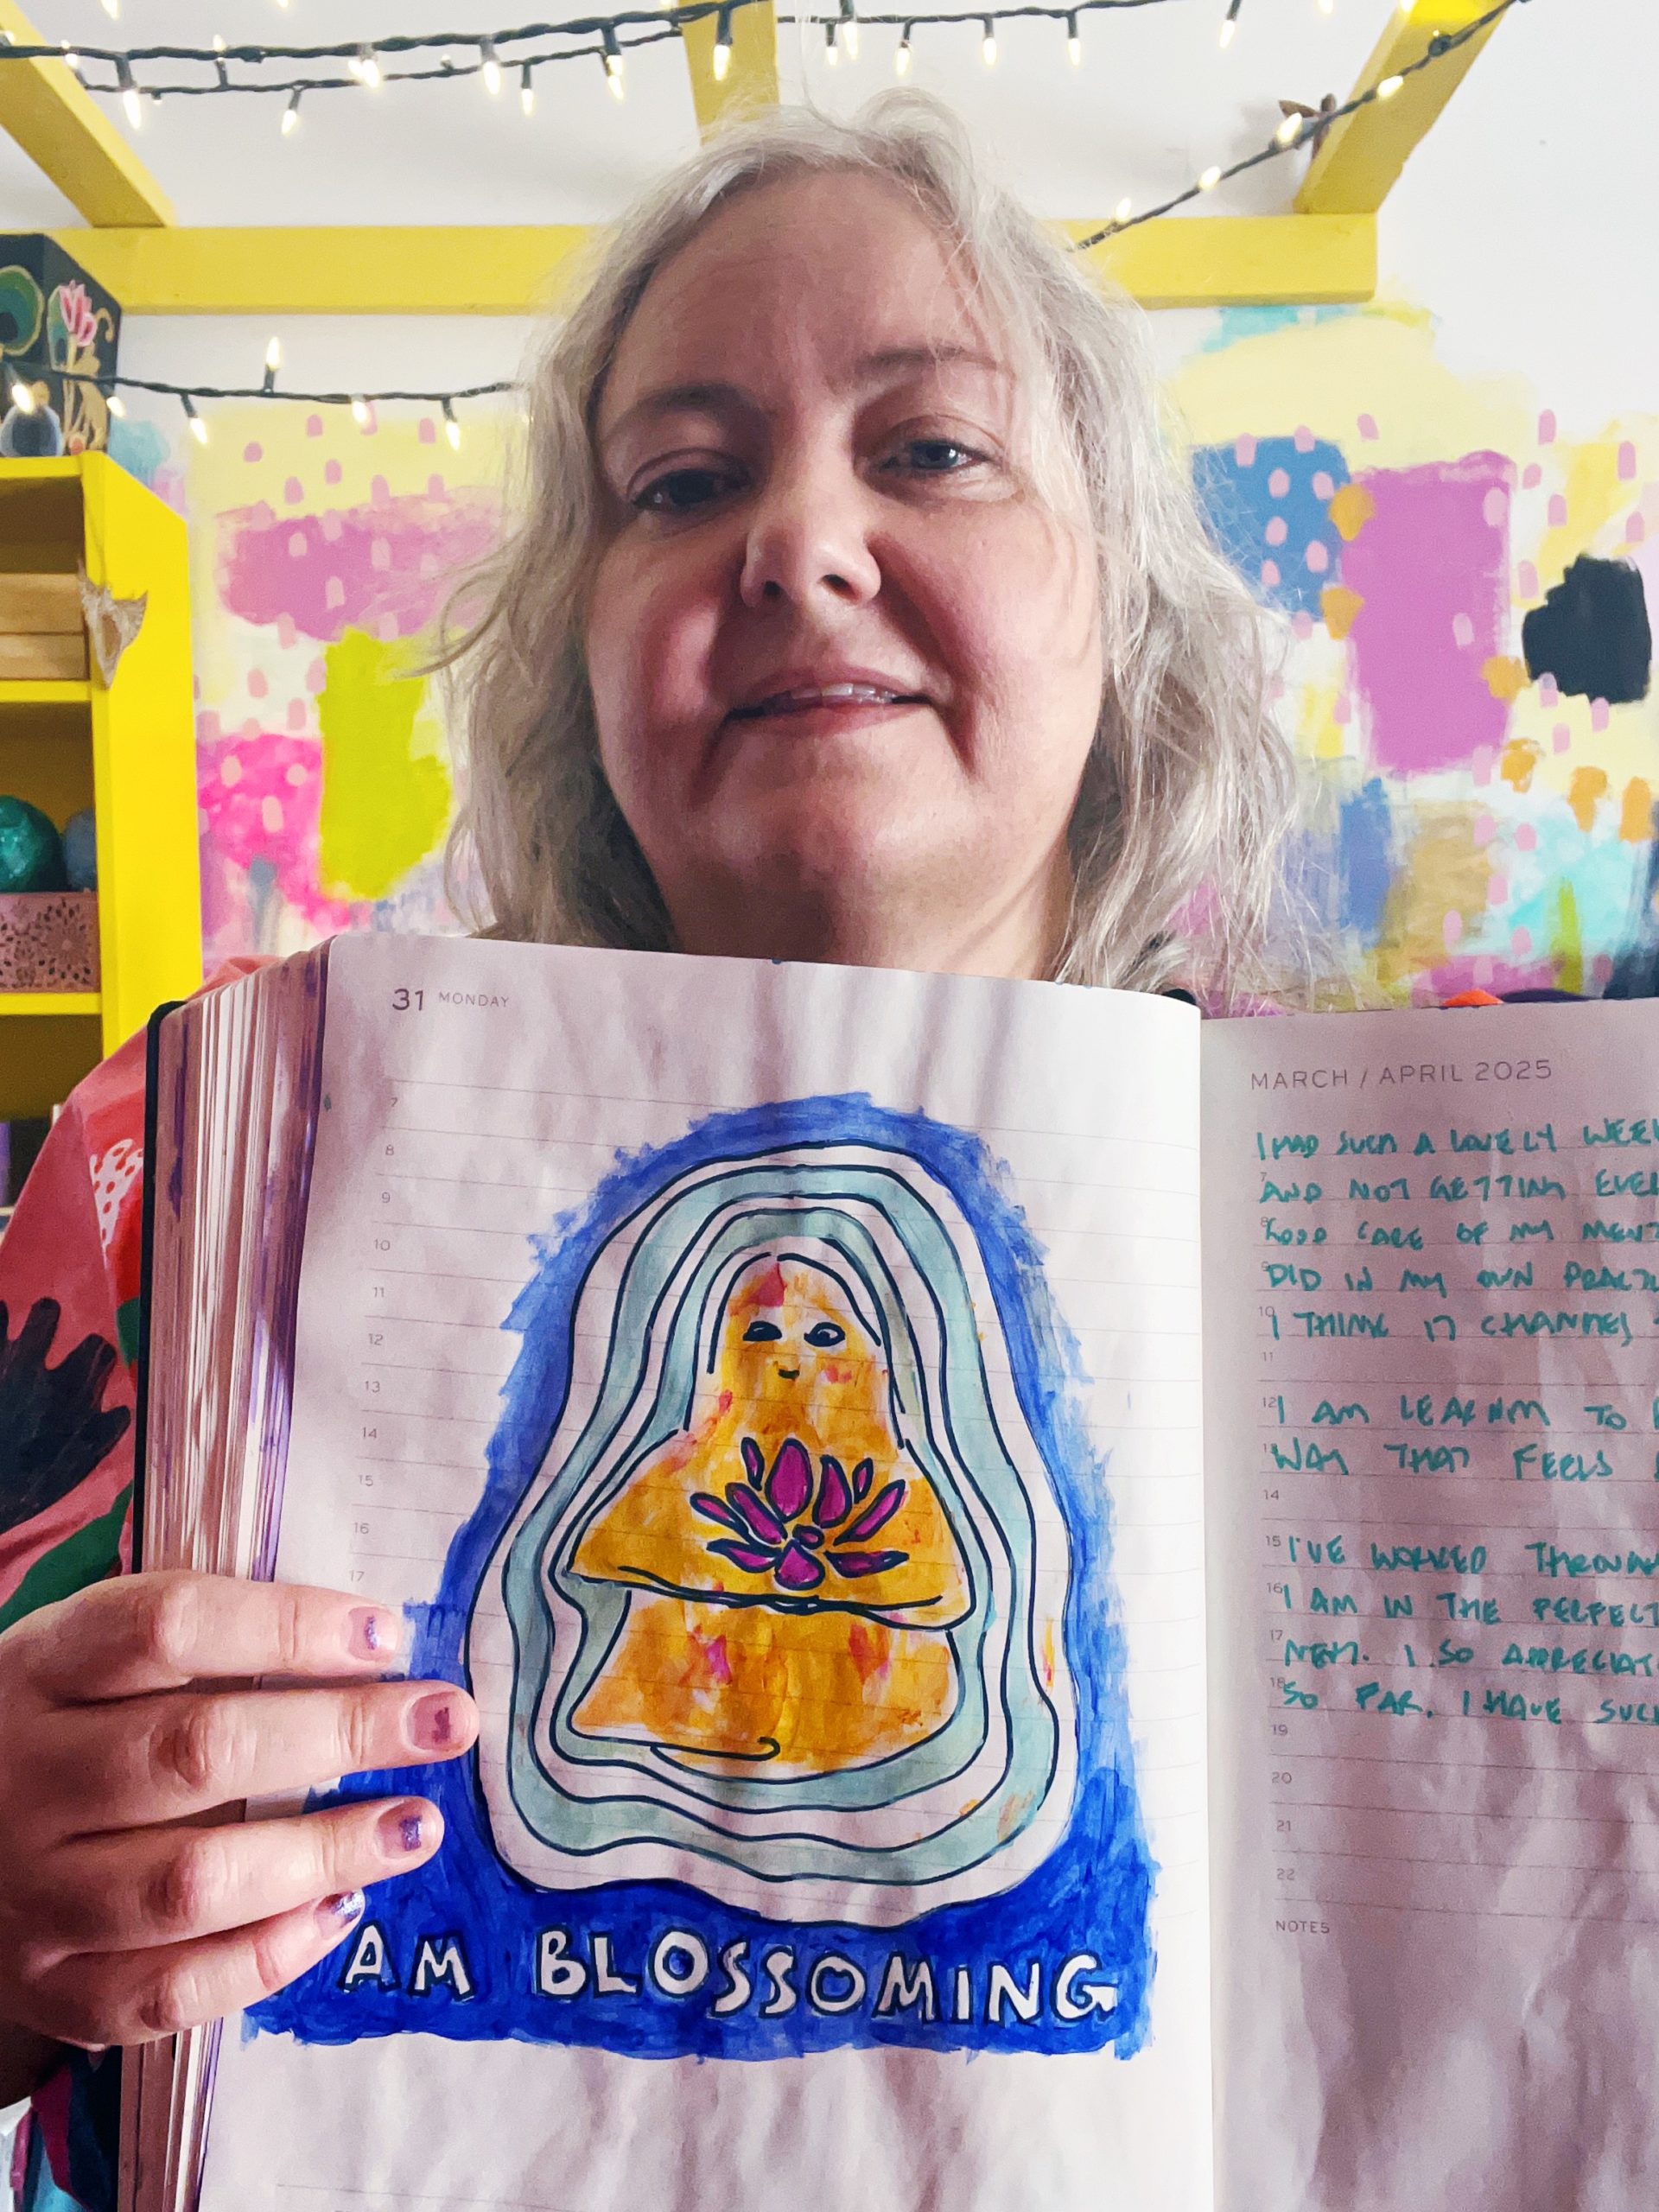 31 MONDAY
7
8
9
10
11
12
13
14
15
16
17
AM BLOSSOMING
MARCH / APRIL 2025
I HAD SUCH A LOVELY WEE
7
AND NOT GETTING EVE
8
GOOD CARE OF MY MENT
9
DID IN MY OWN PRACTI
10
I THINK IT CHANNELS
11
12
I AM LEARNING TO
13
WAY THAT FEELS
14
15
I'VE WORKED THROUGH
16
I AM IN THE PERFECT
17
NEXT. I SO APPRECIAT
18
SO FAR. I HAVE SUC
19
20
21
22
NOTES